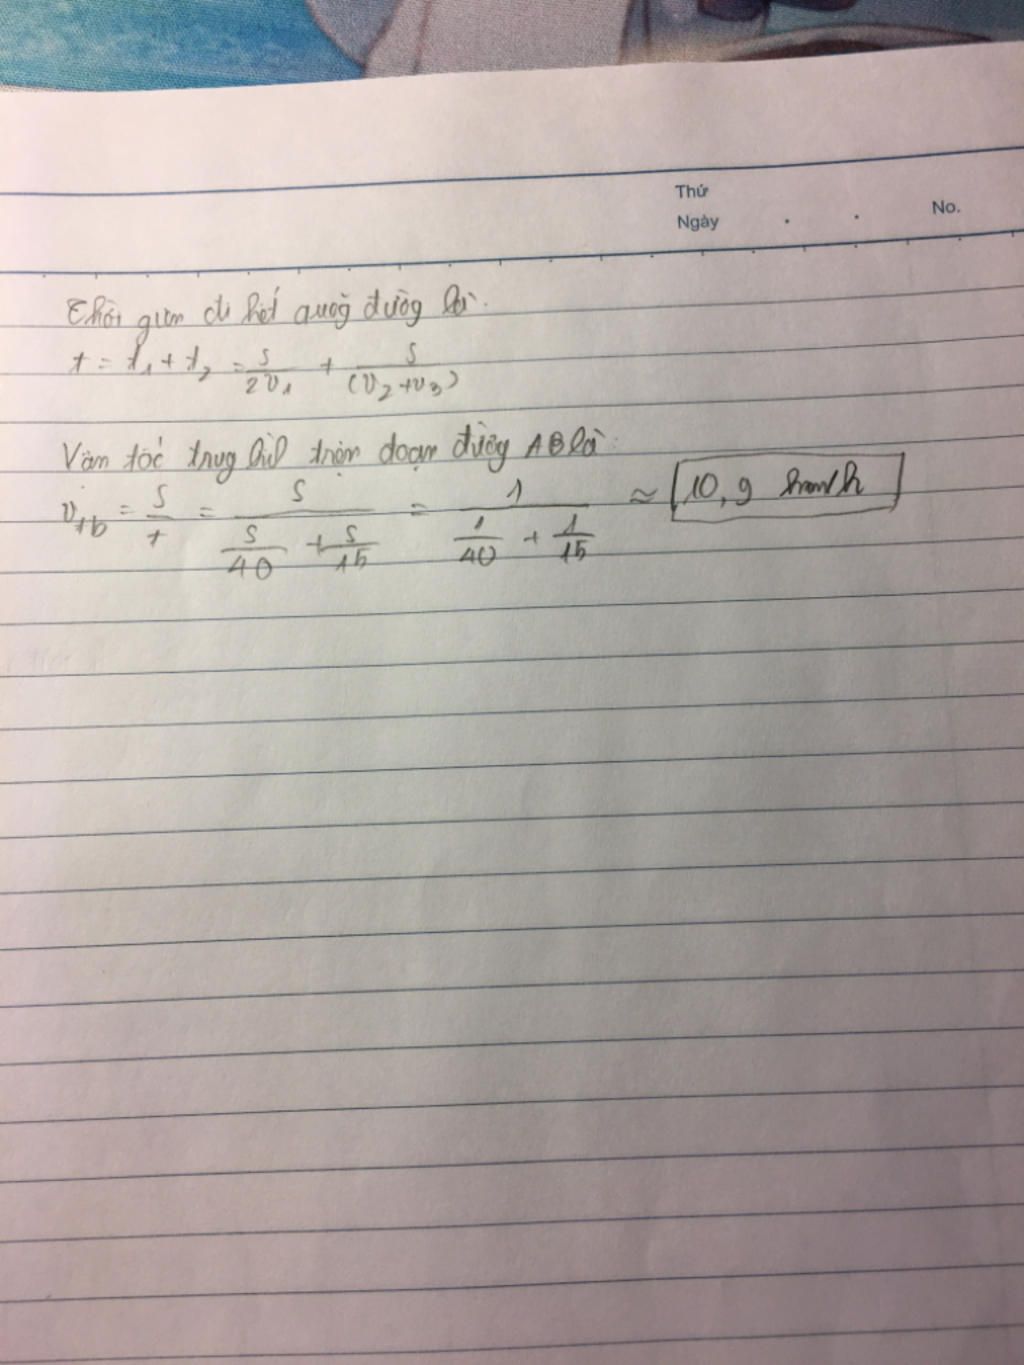 Thứ
Ngày . . No.
Thời gian đi hết quãg đườg là:
t = t₁ + t₂ = s/2v₁ + s/(v₂+v₃)
Vận tốc trug bìh trên đoạn đườg AB là:
v_tb = s/t = s/(s/40 + s/15) = 1/(1/40 + 1/15) ≈ 10,9 km/h